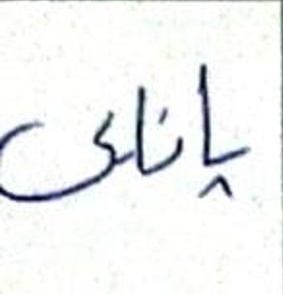 پانای